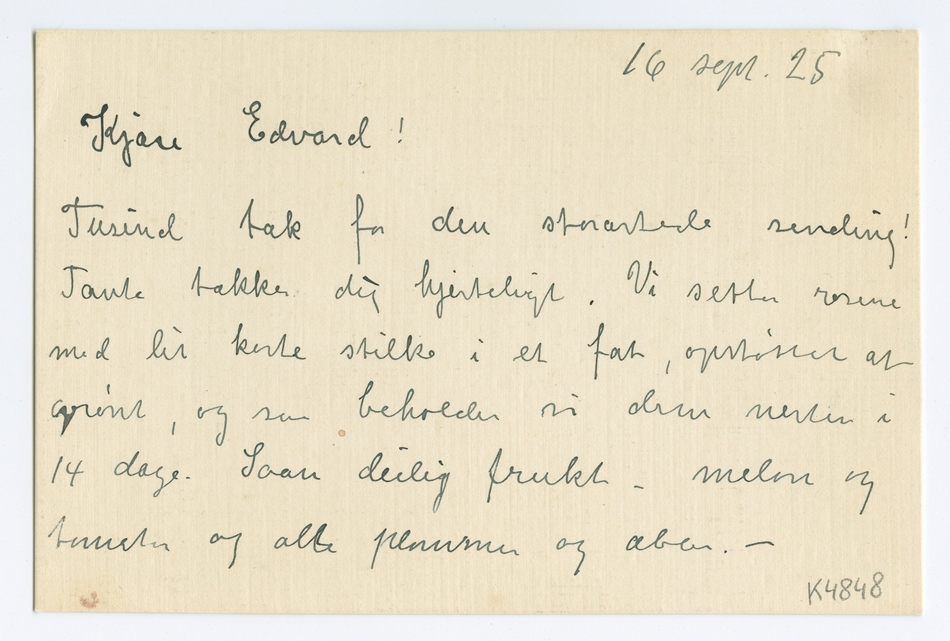 16 sept. 25
Kjære Edvard!
Tusind tak for den storartede sending!
Tante takker dig hjerteligt. Vi setter rosene
med lit korte stilke i et fat, opstøttet af
grønt, og saa beholder vi dem nesten i
14 dage. Saan deilig frukt - melon og
tomater og alle plommer og æbler. —
K4848